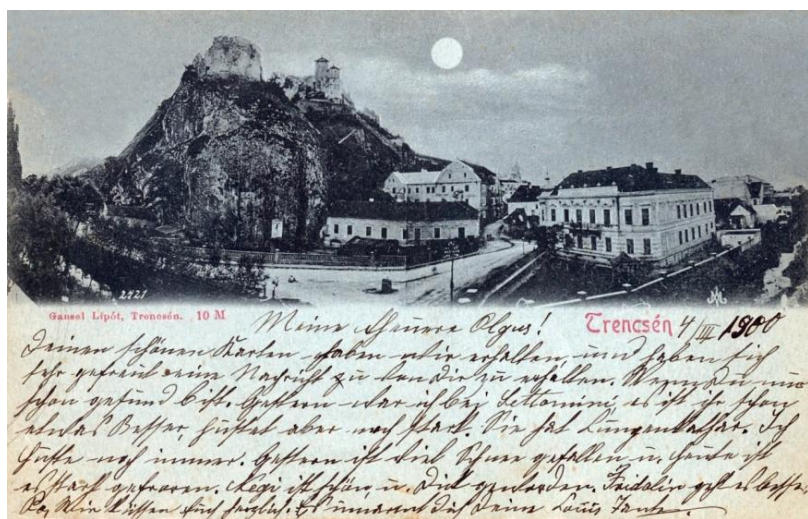 2421
Gansel Lipót, Trencsén. 10 M
Trencsén 4/III 1900
Meine theuere Olgus!
Deinen schönen Karten haben wir erhalten, und haben sich
sehr gefreut eine Nachricht zu von dir zu erhalten. Wenn du nur
schon gesund bist. Gestern war ich bei es ist ihr schon
etwas Besser, hustet aber noch stark. Sie hat Lungenkathar. Ich
huste noch immer. Gestern ist viel Schnee gefallen u. heute ist
es stark gefroren. ist schön u. Dick geworden. Fridolin geht es besser.
Wir küssen Euch herzlich. Es umarmt Dich Deine Tante